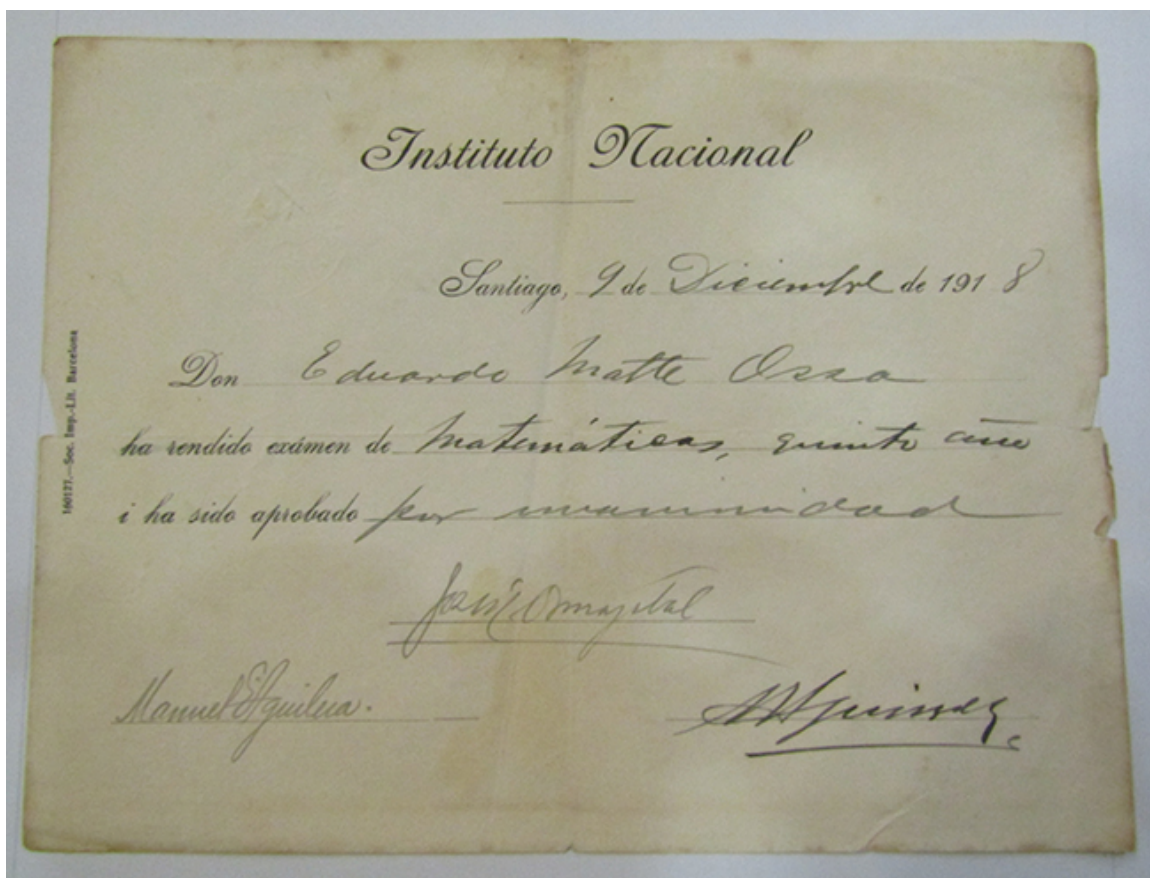 Instituto Nacional
Santiago, 9 de Diciembre de 1918
Don Eduardo Matte Ossa
ha rendido exámen de Matemáticas, quinto año
i ha sido aprobado por unanimidad
Manuel E. Aguilera.
160127.—Soc. Imp.-Lit. Barcelona